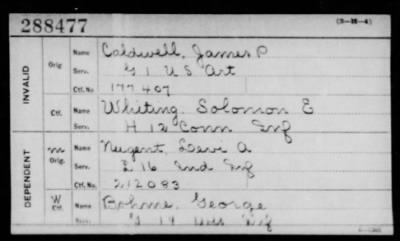 288477
(3-28-4)
INVALID
Orig. Name Caldwell, James P
Serv. G 1 U S Art
Ctf. No. 177407
Ctf. Name Whiting, Solomon E
Serv. H 12 Conn Inf
DEPENDENT
m Orig. Name Nugent, Levi A
Serv. L 16 Ind Inf
Ctf. No. 212083
W Ctf. Name Bohme, George
Serv. G 14 Inf